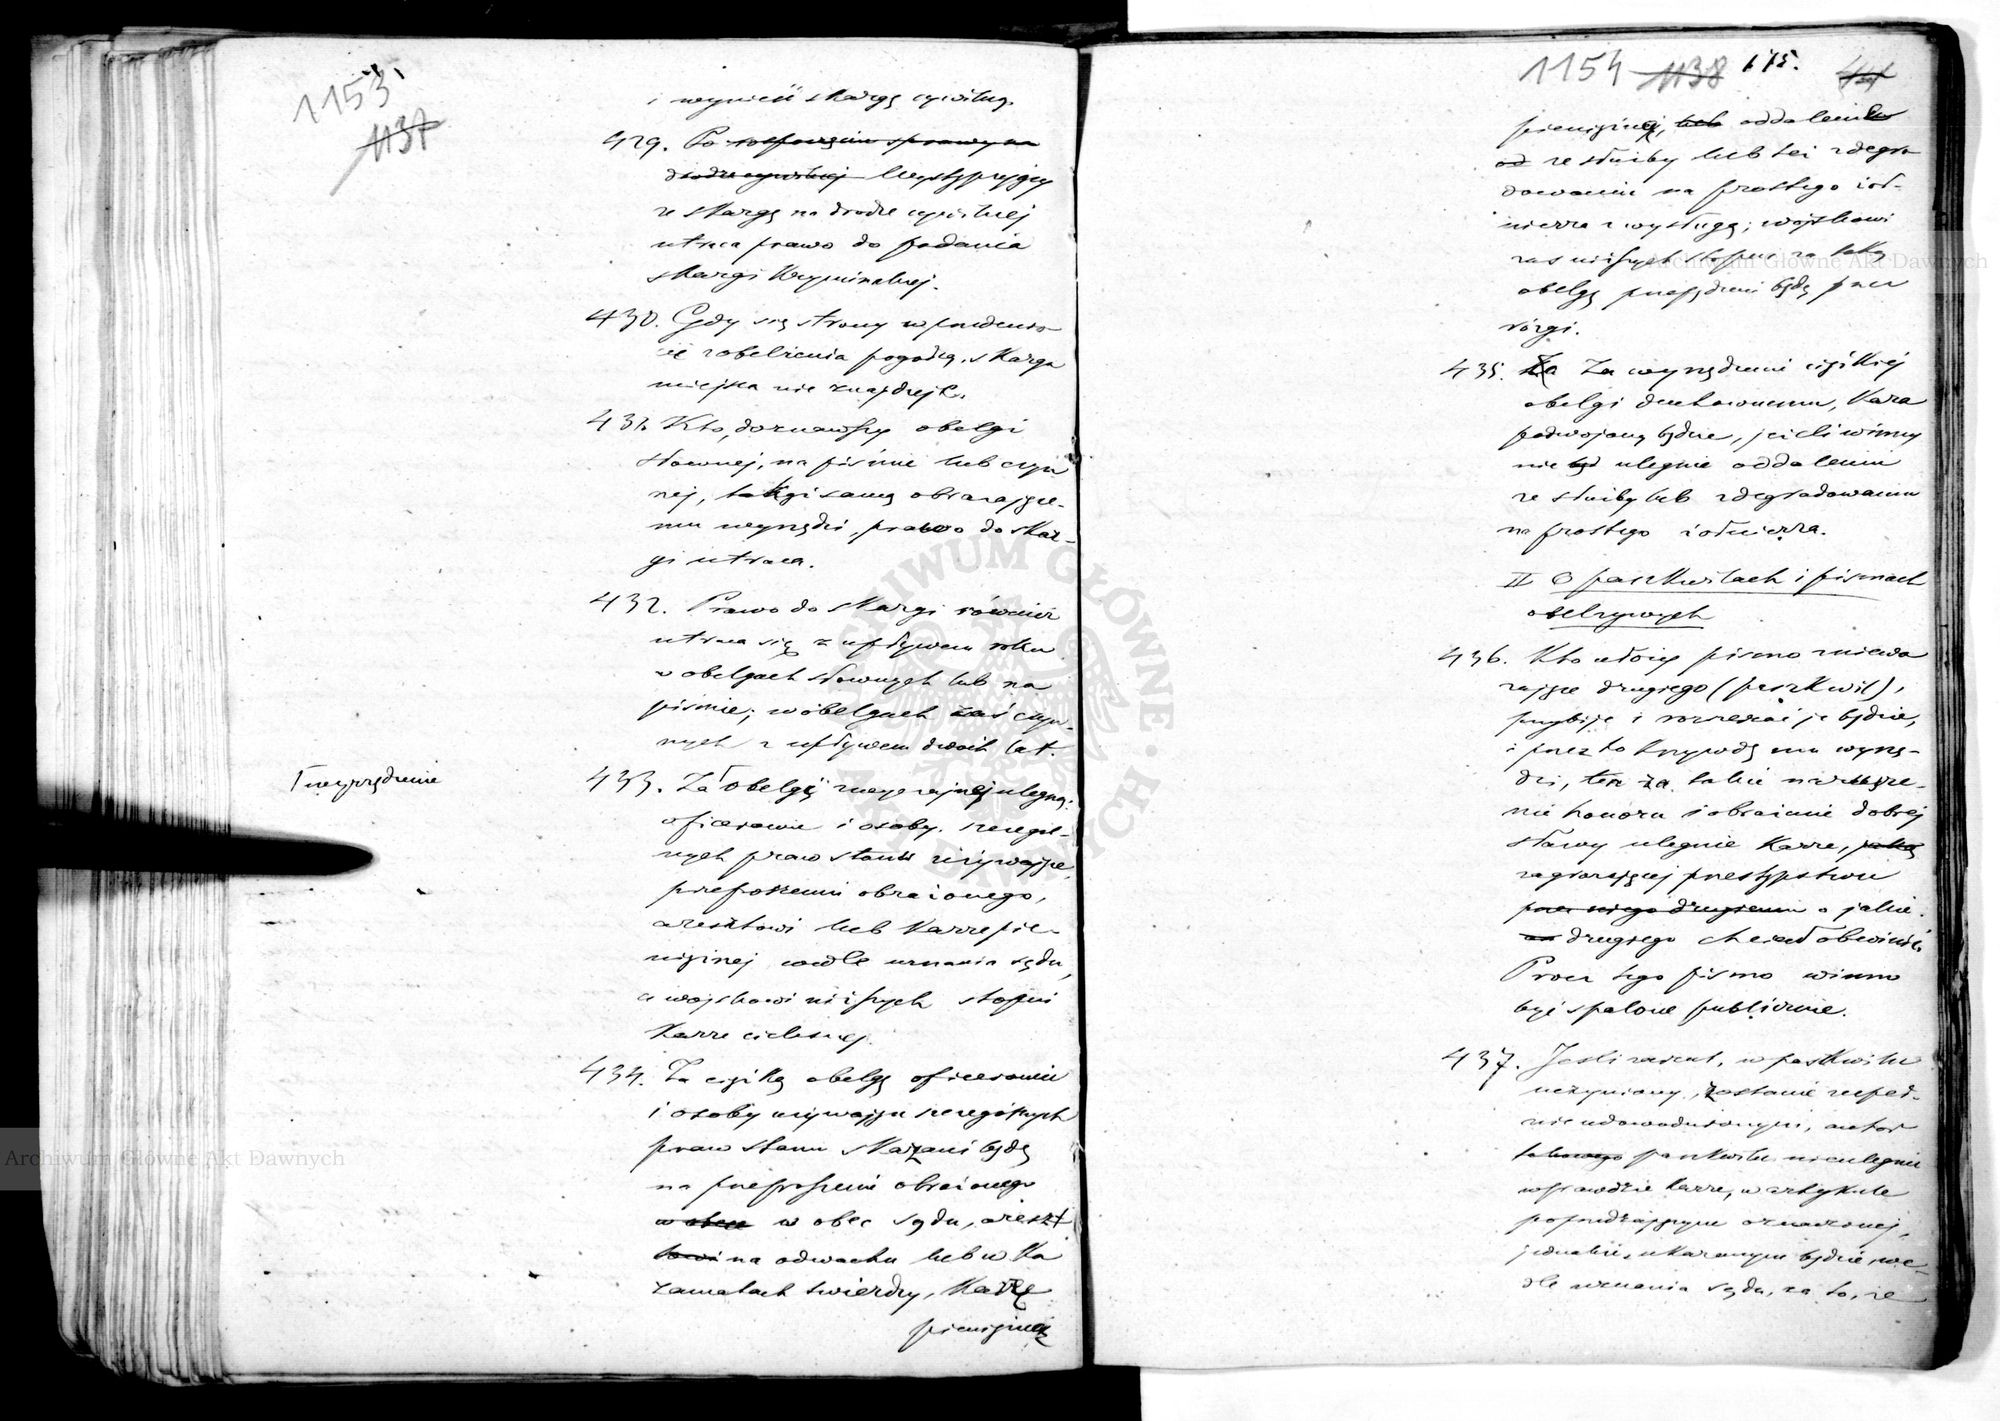 1153
1137
i wynieść skargę cywilną.
429. Po rozpoczęciu sprawy na
drodze cywilnej Występujący
ze skargą na drodze cywilnej
utraca prawo do podania
skargi Kryminalnej.
430. Gdy się strony w przedmio-
cie zobelżenia pogodzą, skarga
miejsca nie znajdzie.
431. Kto, doznawszy obelgi
słownej, na piśmie lub czyn
nej, takąż samą obrażające-
mu wyrządzi, prawo do skar-
gi utraca.
432. Prawo do skargi również
utraca się z upływem roku
w obelgach słownych lub na
piśmie; w obelgach zaś czyn-
nych z upływem dwóch lat.
433. Za obelgi zwyczajnej ulegną:
wyrządzenie
oficerowie i osoby szczegól-
nych praw stanu używające,
przeproszeniu obrażonego,
aresztowi lub Karze pie-
niężnej wedle uznania sądu,
a wojskowi niższych stopni
Karze cielesnej.
434. Za ciężką obelgę oficerowie
i osoby używające szczególnych
praw stanu skazani będą
na przeproszenie obrażonego
w obec w obec sądu, areszt
towi na odwachu lub w Ka
zamatach twierdzy, Karę
pieniężną
1154 1138 175.
pieniężną, lub oddalenie
od ze służby lub też zdegra
dowanie na prostego żoł-
nierza z wysługą; wojskowi
zaś niższych stopni za taką
obelgę przepędzeni będą przez
rózgi.
435. Za Za wyrządzenie ciężkiej
obelgi duchownemu, Kara
podwojoną będzie, jeżeli winny
nie ulegnie oddaleniu
ze służby lub zdegradowaniu
na prostego żołnierza.
II O paszkwilach i pismach
obelżywych
436. Kto ułoży pismo znieważa
jące drugiego (paszkwil),
przybije i rozrzucać je będzie,
i przez to krzywdę mu wyrzą-
dzi, ten za takie narusze-
nie honoru i obrażenie dobrej
sławy ulegnie Karze, jaką
zagrażającej przestępstwu
przez niego drugiemu o jakie
drugiego chciał obwinić.
Prócz tego pismo winno
być spalone publicznie.
437. Jeśli zarzut, w paszkwilu
uczyniony, zostanie zupeł-
nie udowodnionym, autor
takowego paszkwilu nie ulegnie
wprawdzie karze, w artykule
poprzedzającym oznaczonej,
jednakże ukaranym będzie, we-
dle uznania sądu, za to, że
Archiwum Główne Akt Dawnych
Archiwum Główne Akt Dawnych
ARCHIWUM GŁÓWNE AKT DAWNYCH